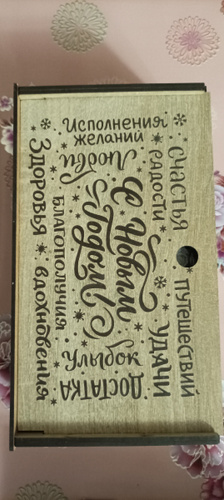 Исполнения
желаний
Любви
Здоровья
Благополучия
Вдохновения
С Новым
Годом!
Счастья
Радости
Путешествий
Удачи
Улыбок
Достатка